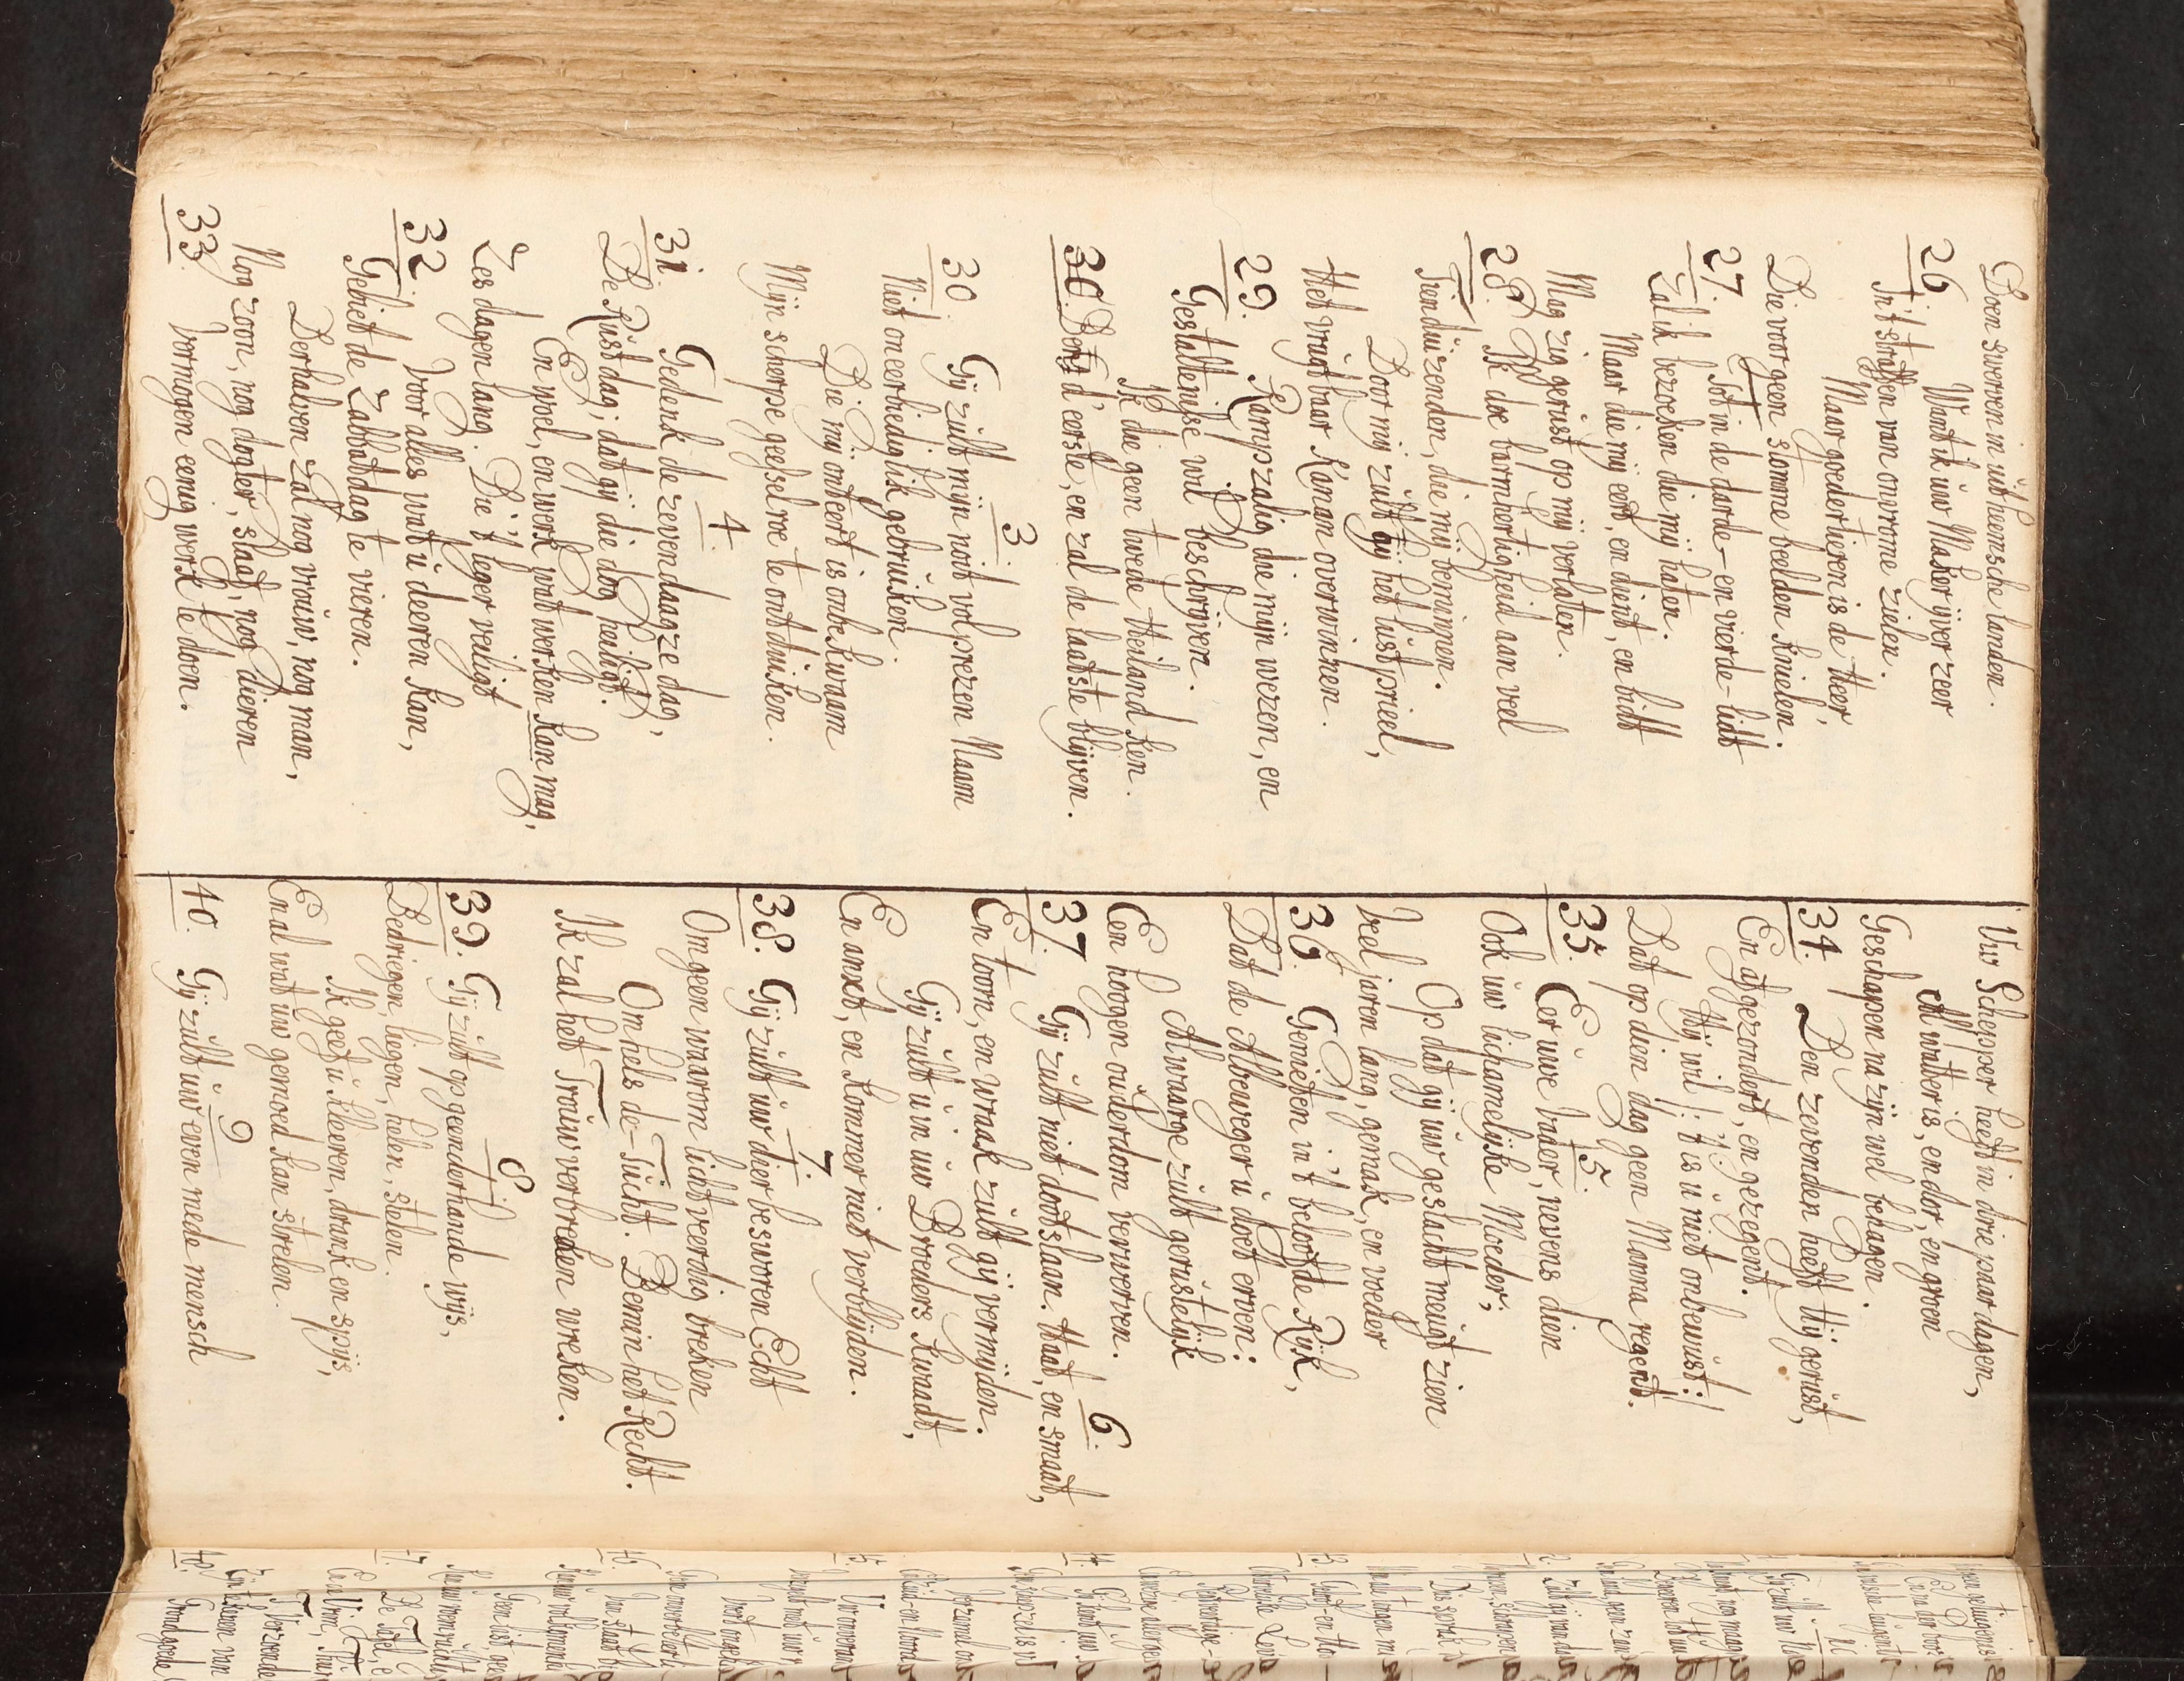 Doen zwerven in uitheemsche landen.
26 Want ik uw Maker ijver zeer
In't straffen van onvrome zielen.
Maar goedertieren is de Heer,
Die voor geen stomme beelden knielen.
27. Tot in de darde- en vierde-lidt
Zal ik bezoeken die mij haten.
Maar die mij eert, en dient, en bidt
Mag zig gerust op mij verlaten.
28. Ik doe barmhertigheid aan veel
Tienduizenden, die mij beminnen.
Door mij zult gij het lustprieel,
Het vrugtbaar Kanan overwinnen.
29. Rampzalig die mijn wezen, en
Gestaltenisse wil beschrijven.
Ik die geen twede Heiland ken.
30. Ben d'eerste, en zal de laatste blijven.
3.
30. Gij zult mijn nooit volprezen Naam
Niet oneerbiediglik gebruiken.
Die mij onteert is onbekwaam
Mijn scherpe geessel roe te ontduiken.
4.
31. Gedenk de zevendaagze dag,
De Rustdag; dat gij die dog heiligt.
En woel, en werk wat werken kan mag,
Zes dagen lang. Die 't leger veiligt
32. Voor alles wat u deeren kan,
Gebiet de Zabbatdag te vieren.
Derhalven zal nog vrouw, nog man,
Nog zoon, nog dogter, slaaf, nog dieren
33. Vermogen eenig werk te doen.
Uw Schepper heeft in drie paar dagen,
Al watter is, en dor, en groen
Geschapen na zijn wel behagen.
34. Den zevenden heeft Hij gerust,
En afgezondert, en gezegent.
Hij wil /: 't is u niet onbewust :/
Dat op dien dag geen Manna regent.
5.
35. Eer uwe Vader, nevens dien
Ook uw lichamelijke Moeder;
Op dat gij uw geslacht meugt zien
Veel jaren lang, gemak, en voeder
36. Genieten in't beloofde Rijk,
Dat de Albeweger u doet erven:
Alwaarge zult gerustelijk
Een hoogen ouderdom verwerven.
6.
37. Gij zult niet dootslaan. Haat, en smaat,
En toorn, en wraak zult gij vermijden.
Gij zult u in uw Broeders kwaadt,
En anxt, en kommer niet verblijden.
7.
38. Gij zult uw dier besworen Echt
Om geen waarom lichtverdig breken
Omhels de-Tucht. Bemin het Recht.
Ik zal het Trouw verbreken wreken.
8
39. Gij zult op geenderhande wijs,
Bedriegen, liegen, helen, stelen.
Ik geef u kleeren, drank en spijs,
En al wat uw gemoed kan streelen.
9
40. Gij zult uw even mede mensch